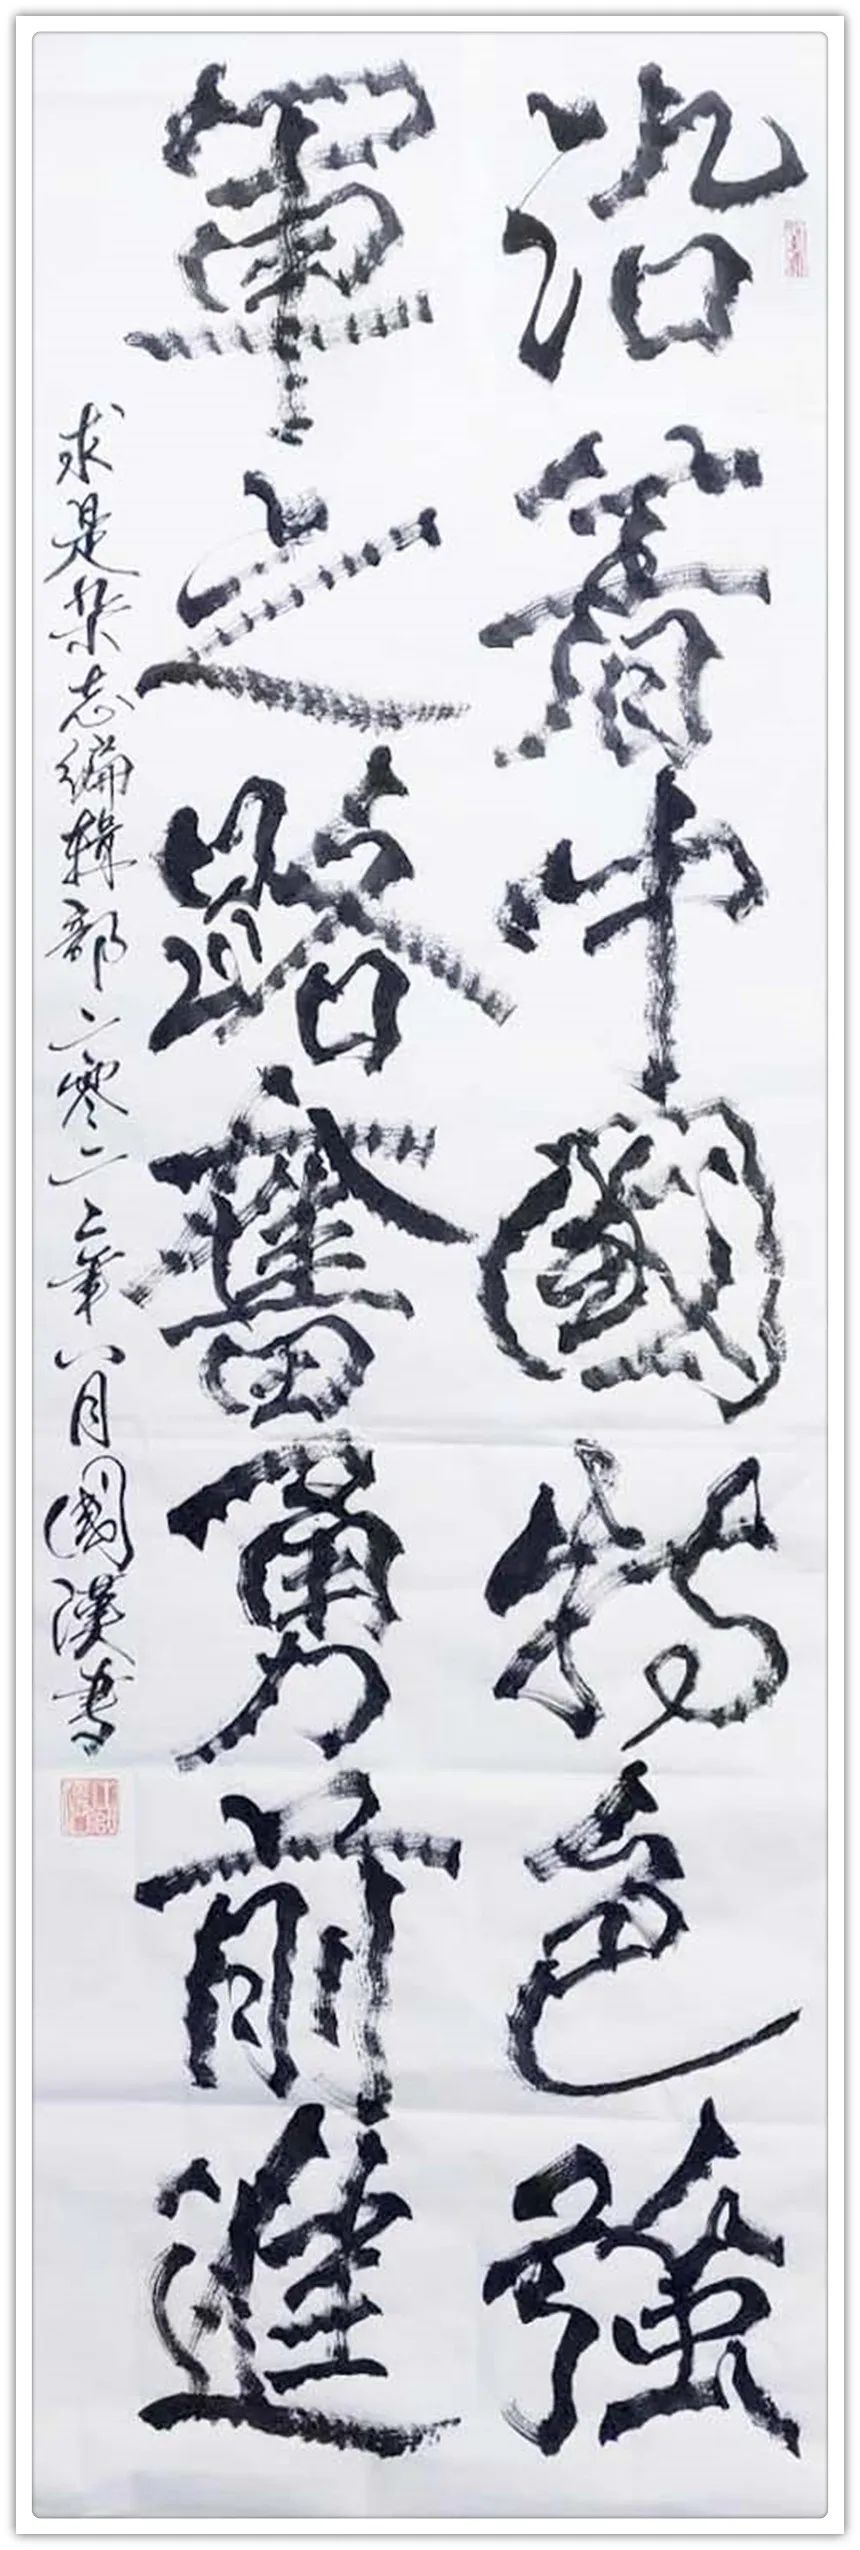 沿着中國特色強
軍之路奮勇前進
求是杂志編輯部二零二二年八月國漢書